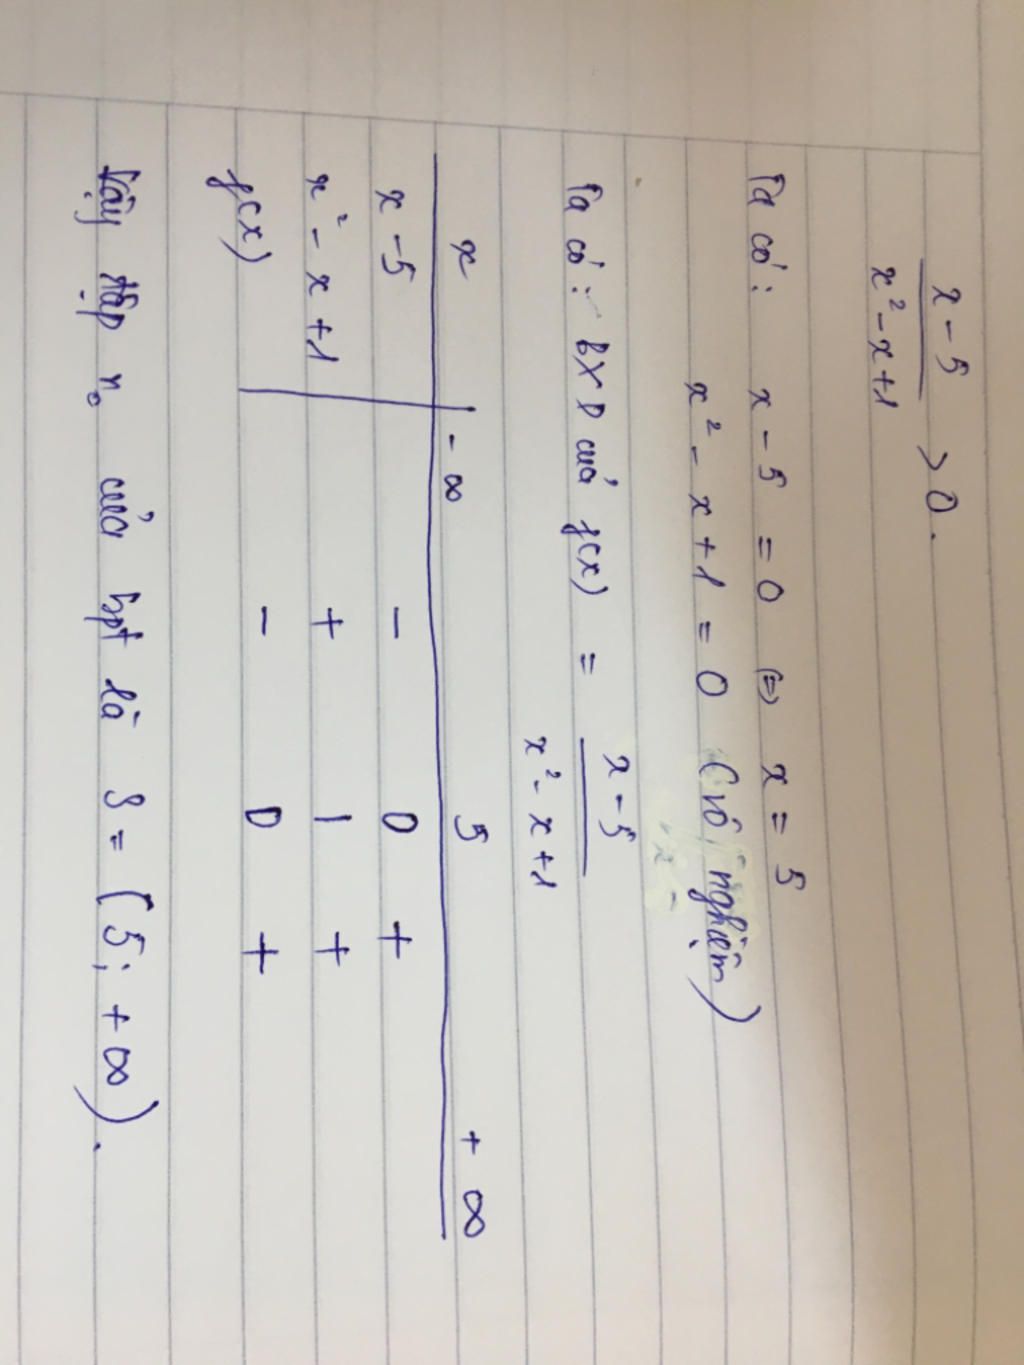 x - 5
x² - x + 1 > 0.
Ta có: x - 5 = 0 (=) x = 5
x² - x + 1 = 0 (vô nghiệm)
Ta có: BXD của f(x) = x - 5
x² - x + 1
x -∞ 5 +∞
x - 5 - 0 +
x² - x + 1 + | +
f(x) - 0 +
Vậy tập n₀ của bpt là S = (5; +∞).